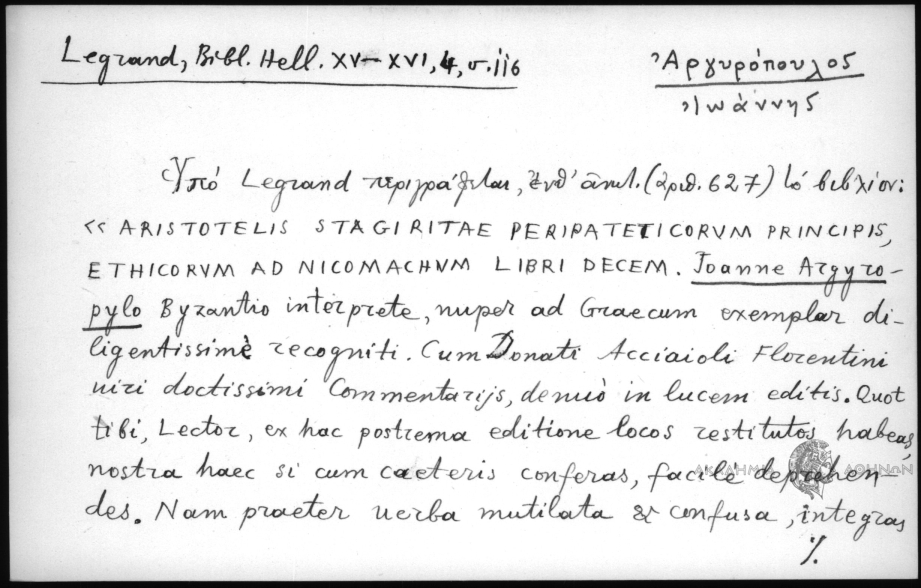 Legrand, Bibl. Hell. XV-XVI, 4, σ. 116
Ἀργυρόπουλος
Ἰωάννης
Ὑπό Legrand περιγράφεται, ἐνθ' ἀνωτ. (ἀριθ. 627) τό βιβλίον:
<< ARISTOTELIS STAGIRITAE PERIPATETICORVM PRINCIPIS,
ETHICORVM AD NICOMACHVM LIBRI DECEM. Joanne Argyro-
pylo Byzantio interprete, nuper ad Graecum exemplar di-
ligentissimè recogniti. Cum Donati Acciaioli Florentini
uiri doctissimi Commentarijs, denuò in lucem editis. Quot
tibi, Lector, ex hac postrema editione locos restitutos habeas,
nostra haec si cum caeteris conferas, facile deprehen-
des. Nam praeter uerba mutilata & confusa, integras
ΑΚΑΔΗΜΙΑ ΑΘΗΝΩΝ
%.